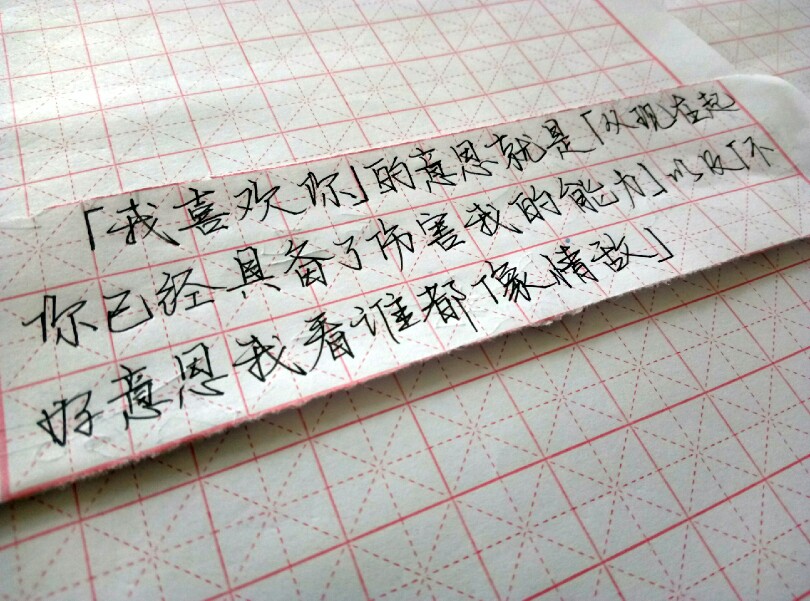 「我喜欢你」的意思就是「从现在起
你已经具备了伤害我的能力」以及「不
好意思我看谁都像情敌」